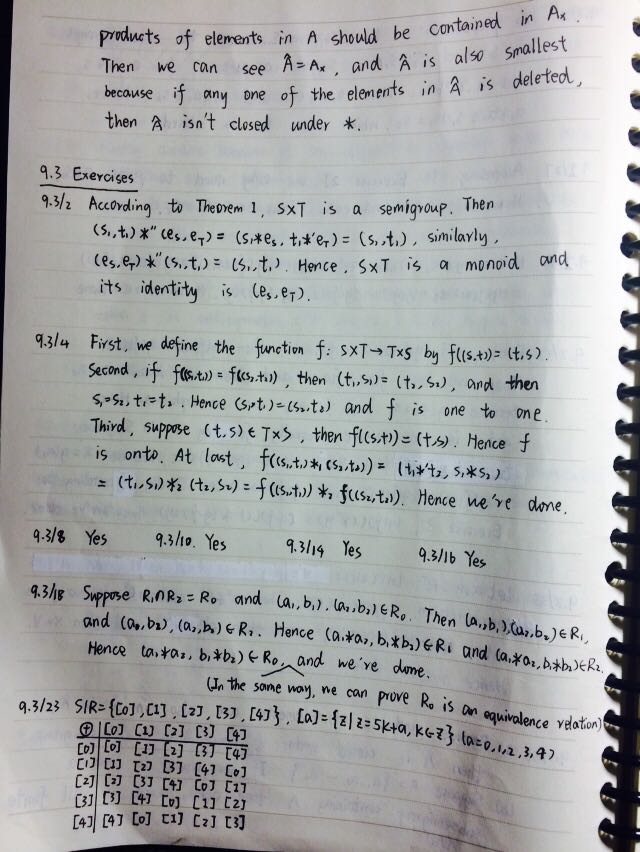 products of elements in A should be contained in A*.
Then we can see Â=A*, and Â is also smallest
because if any one of the elements in Â is deleted,
then Â isn't closed under *.
9.3 Exercises
9.3/2 According to Theorem 1, S×T is a semigroup. Then
(s₁,t₁)*''(es,eT) = (s₁*es, t₁*'eT) = (s₁,t₁), similarly,
(es,eT)*''(s₁,t₁) = (s₁,t₁). Hence, S×T is a monoid and
its identity is (es,eT).
9.3/4 First, we define the function f: S×T→T×S by f((s,t))=(t,s).
Second, if f((s₁,t₁)) = f((s₂,t₂)), then (t₁,s₁)=(t₂,s₂), and then
s₁=s₂, t₁=t₂. Hence (s₁,t₁)=(s₂,t₂) and f is one to one.
Third, suppose (t,s)∈T×S, then f((s,t))=(t,s). Hence f
is onto. At last, f((s₁,t₁)*₁(s₂,t₂)) = (t₁*'t₂, s₁*s₂)
= (t₁,s₁)*₂(t₂,s₂) = f((s₁,t₁))*₂ f((s₂,t₂)). Hence we're done.
9.3/8 Yes 9.3/10. Yes 9.3/14 Yes 9.3/16 Yes
9.3/18 Suppose R₁∩R₂=R₀ and (a₁,b₁),(a₂,b₂)∈R₀. Then (a₁,b₁),(a₂,b₂)∈R₁,
and (a₁,b₂),(a₂,b₂)∈R₂. Hence (a₁*a₂, b₁*b₂)∈R₁ and (a₁*a₂,b₁*b₂)∈R₂.
Hence (a₁*a₂, b₁*b₂)∈R₀, and we're done.
(In the same way, we can prove R₀ is an equivalence relation)
9.3/23 S/R={[0],[1],[2],[3],[4]}, [a]={z|z=5k+a, k∈Z} (a=0,1,2,3,4)
⊕ [0] [1] [2] [3] [4]
[0] [0] [1] [2] [3] [4]
[1] [1] [2] [3] [4] [0]
[2] [2] [3] [4] [0] [1]
[3] [3] [4] [0] [1] [2]
[4] [4] [0] [1] [2] [3]